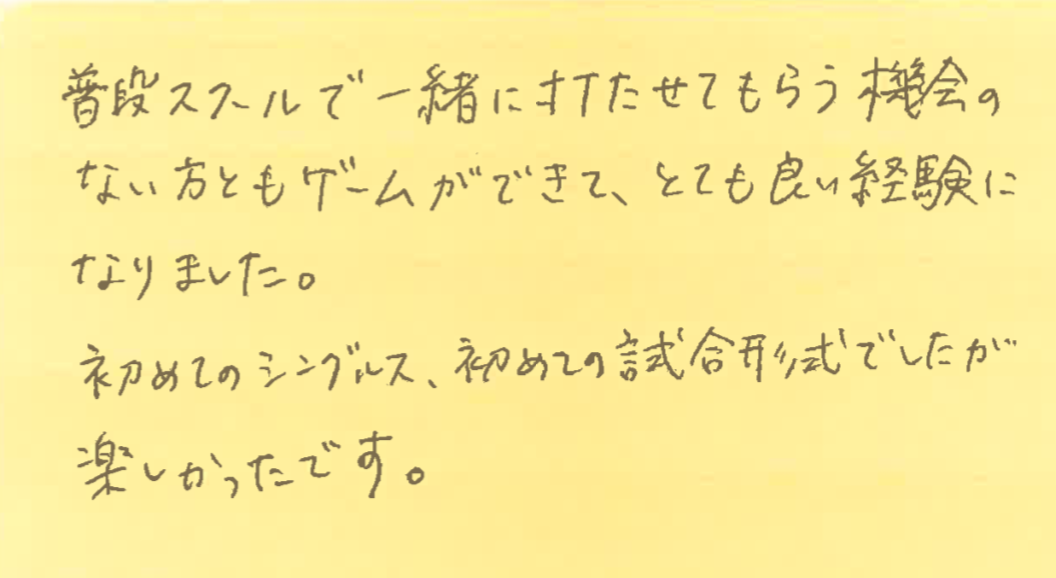 普段スクールで一緒に打たせてもらう機会の
ない方ともゲームができて、とても良い経験に
なりました。
初めてのシングルス、初めての試合形式でしたが
楽しかったです。